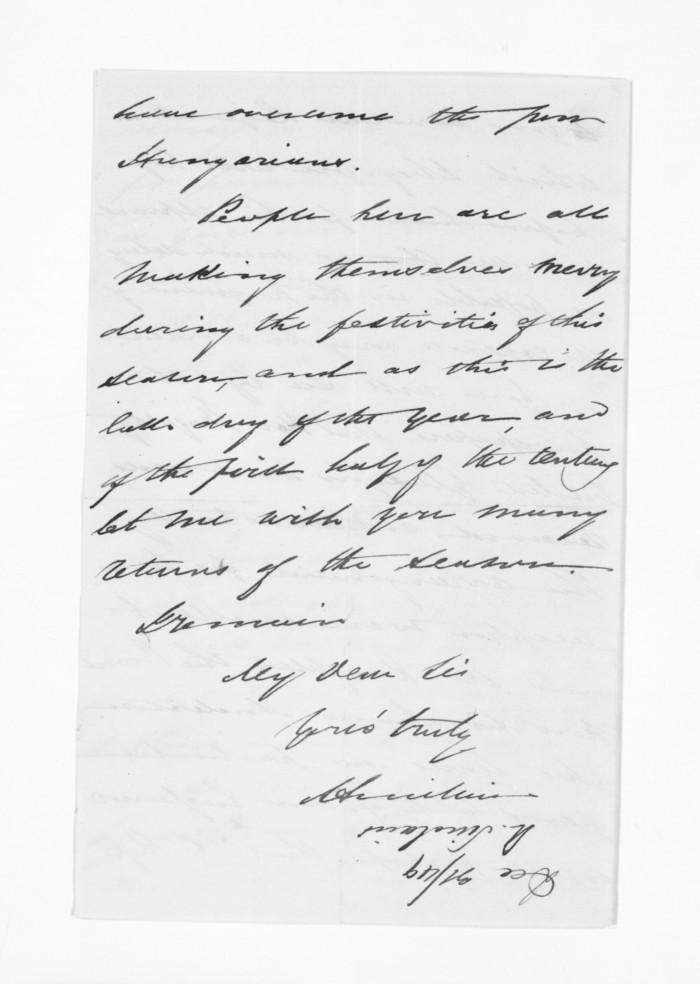 have overcome the poor
Hungarians.
People here are all
making themselves merry
during the festivities of this
season, and as this is the
last day of the Year, and
of the first half of the Century
let me wish you many
returns of the season.
I remain
My Dear Sir
Yours truly
A Sinclair
A. Sinclair
Dec 31/49